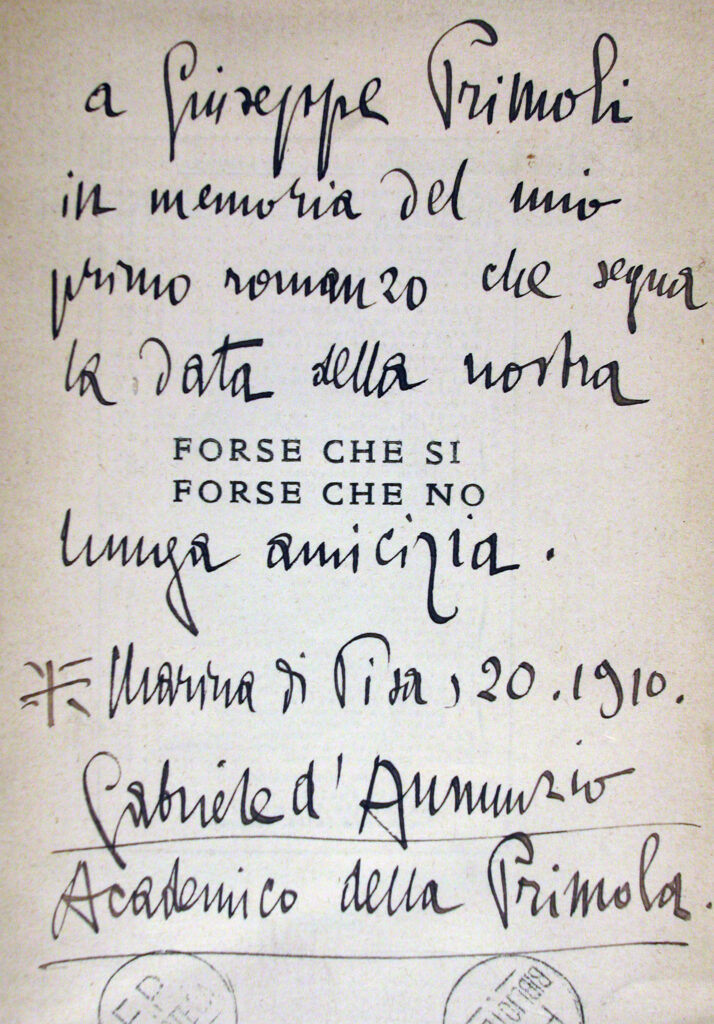 a Giuseppe Primoli
in memoria del mio
primo romanzo che segna
la data della nostra
FORSE CHE SI
FORSE CHE NO
lunga amicizia.
Marina di Pisa, 20.1910.
Gabriele d'Annunzio
Academico della Primola.